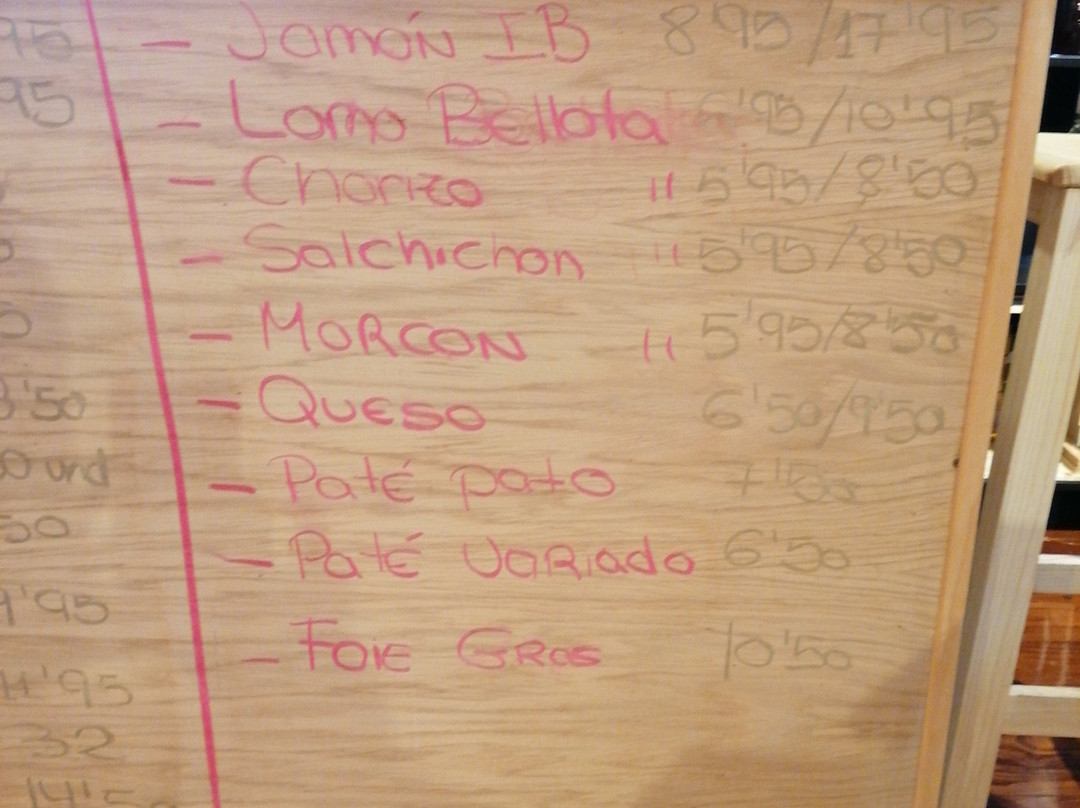 95
95
3'50
0 und
50
9'95
11'95
32
14'50
- Jamón IB 8'95/17'95
- Lomo Bellota 6'95/10'95
- Chorizo " 5'95/8'50
- Salchichon " 5'95/8'50
- MORCON " 5'95/8'50
- QUESO 6'50/9'50
- Paté pato 7'50
- Paté VARiado 6'50
- FOIE GRAS 10'50